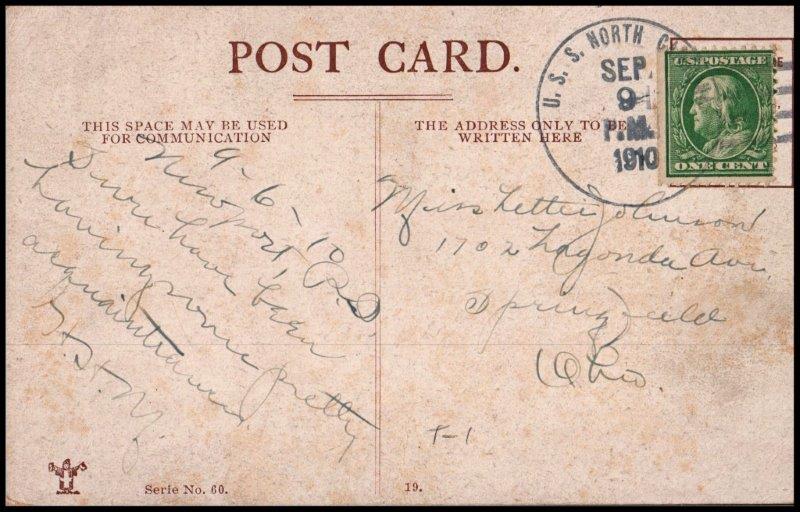 POST CARD.
THIS SPACE MAY BE USED
FOR COMMUNICATION
THE ADDRESS ONLY TO BE
WRITTEN HERE
U. S. S. NORTH
SEP
9
P.M.
1910
U.S. POSTAGE
ONE CENT
9-6-10
Newport, R.I.
Sure have been
having some pretty
acquaintances
H.H.M.
Miss Lettie Johnson
1702 Lagonda Ave.
Springfield
Ohio.
T-1
Serie No. 60.
19.